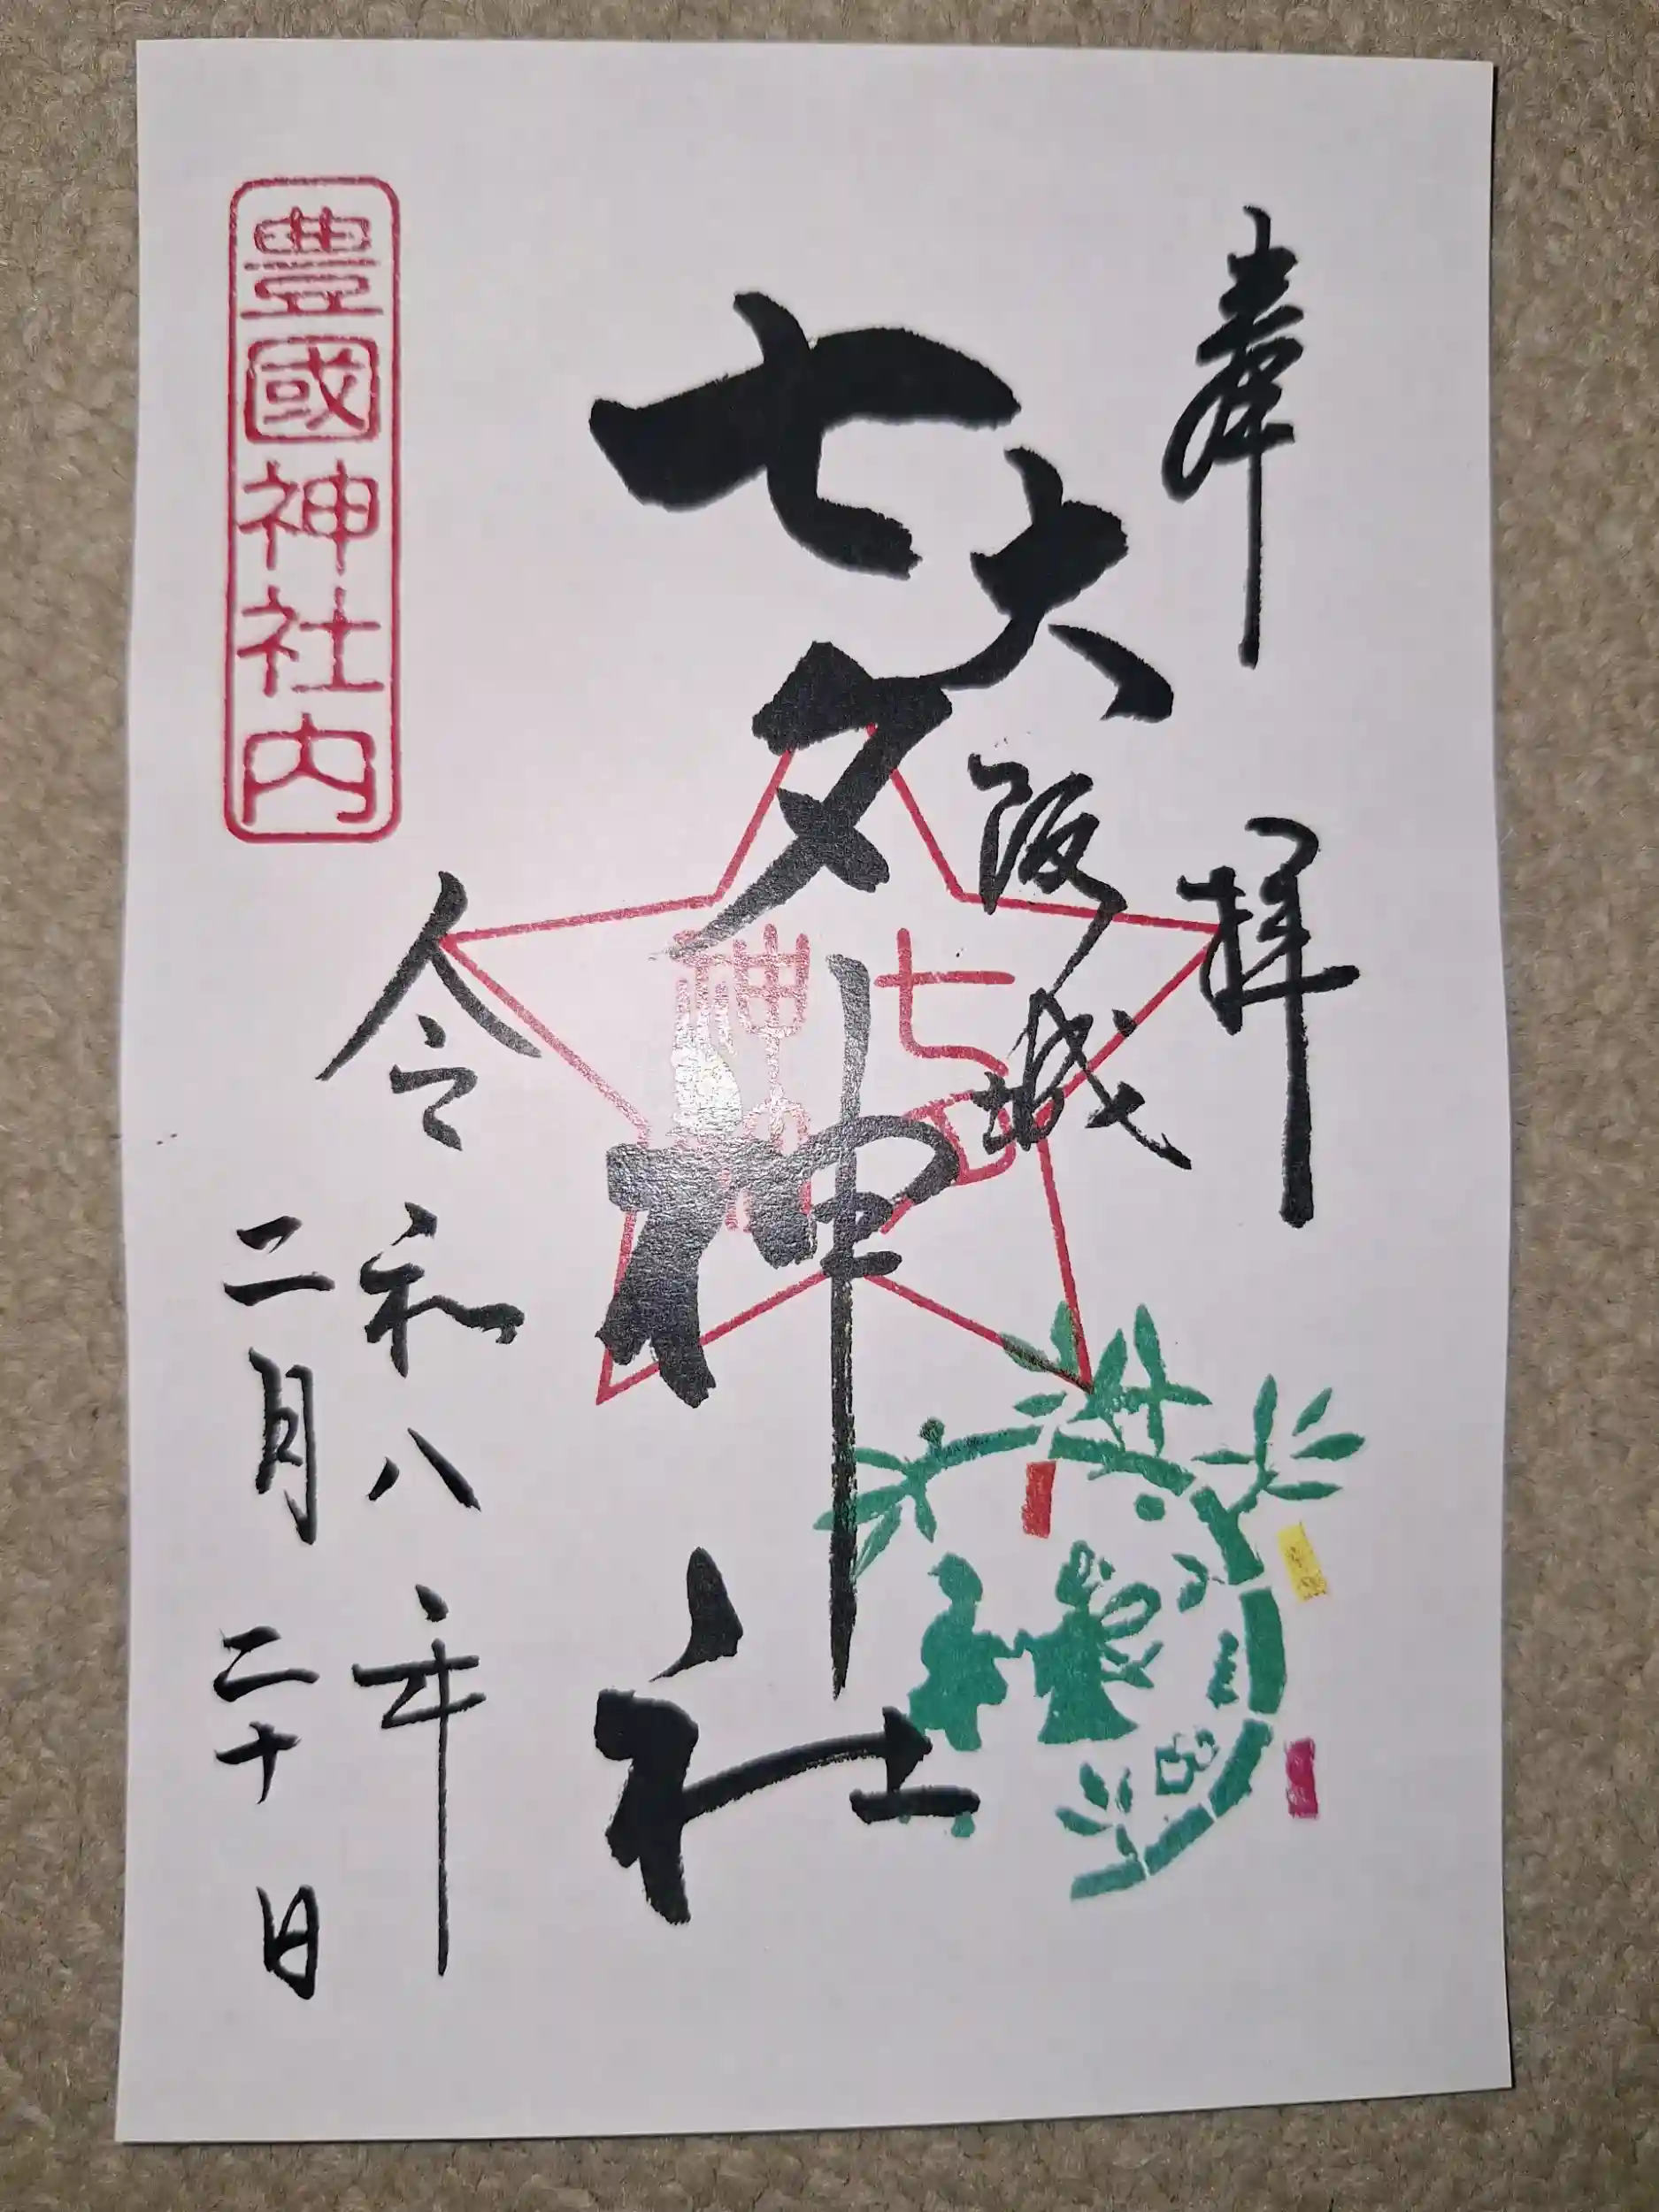 奉拝
大阪城
七夕神社
七夕神社
令和八年
二月二十日
豊國神社内